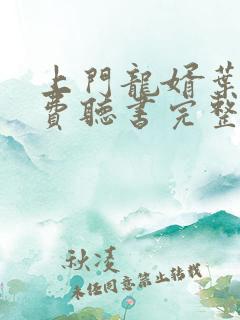 上門龍婿葉
費聽書完整
秋凌
未经同意禁止转载